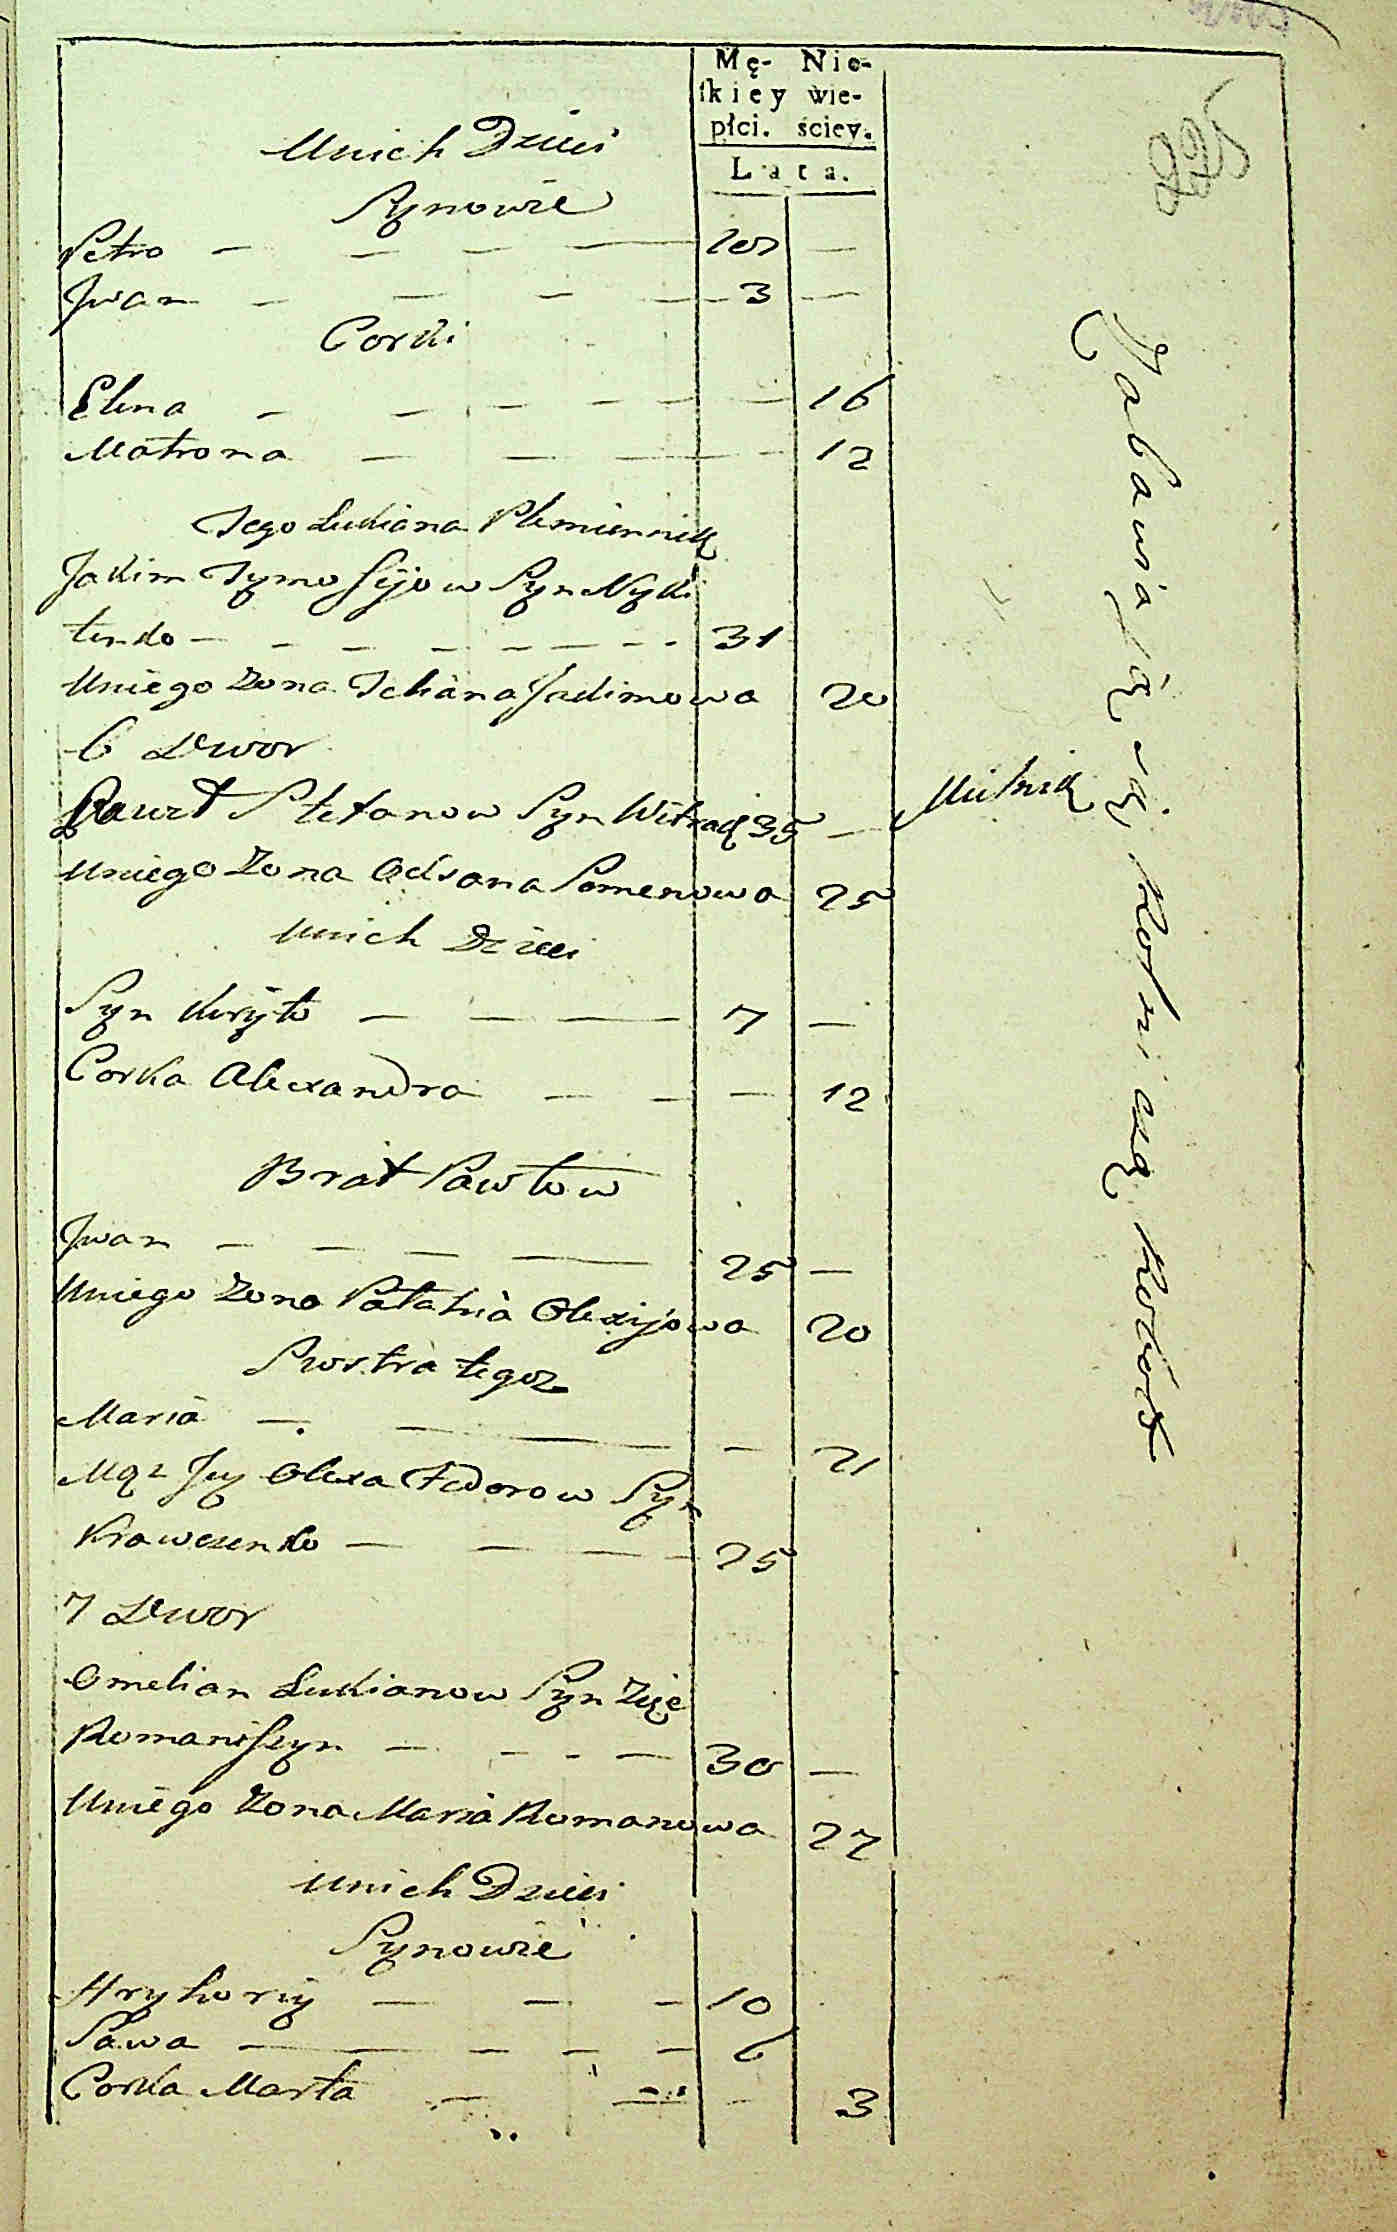 Mę- Nie-
skiey wie-
płci. ściey.
Lata.
Unich Dzieci
Synowie
Petro — — — — —
Jwan — — — — 3 —
Corki
Elena — — — — — — 16
Matrona — — — — 12
Jego Lukiana Plemiennik
Jakim Tymofijow Syn Nyki
tenko — — — — — — 31
Uniego Zona Tekiana Jakimowa 20
6 Dwor
Paweł Stefanow Syn Witrak 35 — Mielnik
Uniego Zona Oksana Semenowa 25
Unich Dzieci
Syn Kiryło — — — 7 —
Corka Alexandra — — — 12
Brat Pawłow
Jwan — — — — 25 —
Uniego Zona Pałahia Olexijowa 20
Siostra tegoz
Maria — — — 21
Mąz Jey Olexa Fedorow Syn
Krawczenko — — — 25
7 Dwor
Omelian Lukianow Syn Zięć
Romaniszyn — — — — 30 —
Uniego Zona Maria Romanowa 27
Unich Dzieci
Synowie
Hryhorij — — — 10
Sawa — — — — — 6
Corka Marta — — — 3
Zabawiają się Rolniczą Robotą